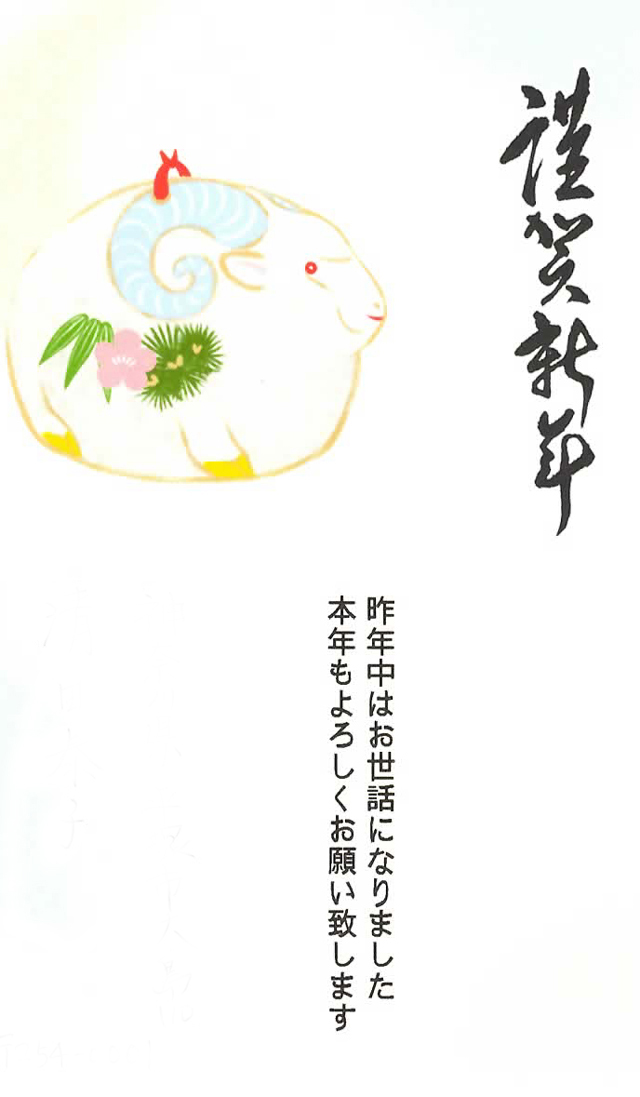 謹賀新年
昨年中はお世話になりました
本年もよろしくお願い致します